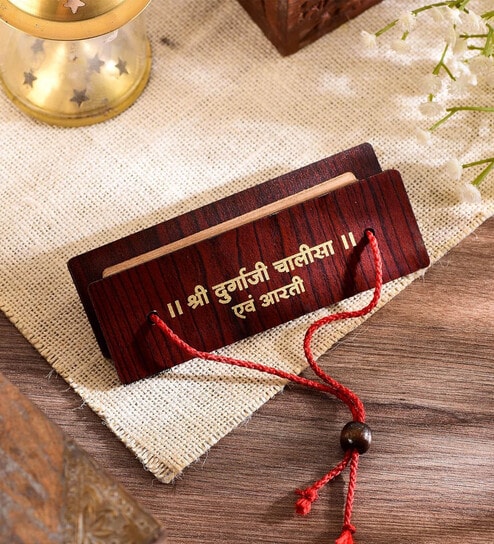 ।। श्री दुर्गाजी चालीसा ।।
एवं आरती